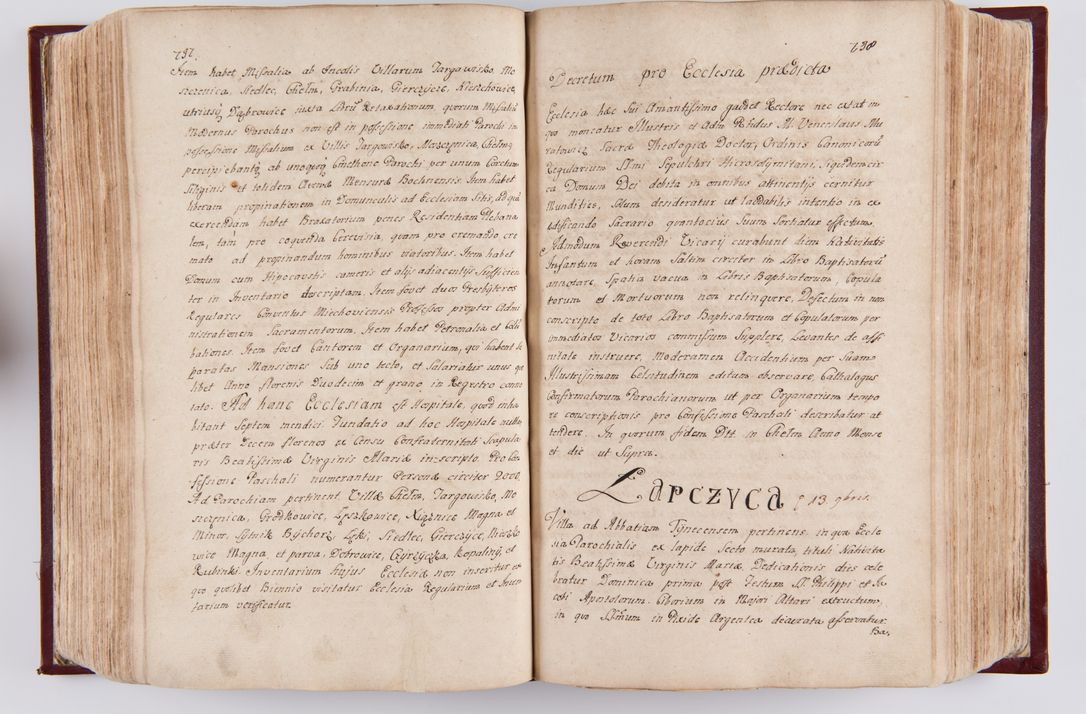 737.
Item habet Missalia ab Incolis Villarum Targawisko, Mo
szczenica, Siedlec, Chełm, Grabinia, Gierczyce, Nieszchowice,
utriusq Dąbrowice iuxta Librũ Retaxationum quorum Missaliũ
Modernus Parochus non est in possessione immediati Parochi in
possessione Missalium ex Villis Targowisko, Moszczenica, Chełm
percipiebantq ab unoquoq Cmethone Parochi per unum Coretum
Siliginis et totidem Avenæ Mensuræ Bochnensis. Item habet
liberam propinationem in Domunculis ad Ecclesiam Sitis, ad quã
exercendam habet Braxatorium penes Residentiam Pleban
lem, tam pro coquenda Cerevisia, quam pro cremando cre
mato ad propinandum hominibus viatoribus. Item habet
Domum cum Hipocaustis cameris et alijs adiacentijs Sufficien
ter in Inventario descriptam. Item fovet duos Presbyteros
Regulares Conventus Miechoviensis Professos propter Admi
nistrationem Sacramentorum. Item habet Petronalia et Colũ
bationes. Item fovet Cantorem et Organarium, qui habent
paratas Mansiones Sub uno tecto, et Salariatur unus
libet Anno florenis Duodecim et grano in Regestro conno
tato. Ad hanc Ecclesiam est Hospitale, quod inha
bitant Septem mendici Fundatio ad hoc Hospitale nulla
præter Decem florenos ex Censu Confraternitati Scapula
ris Beatissimæ Virginis Mariæ inscripto. Pro Con
fessione Paschali numerantur Personæ circiter 2000.
Ad Parochiam pertinent Villæ Chełm, Targowisko, Mo
szczenica, Grodkowice, Łyszkowice, Xiąznice Magna et
Minor, Łysnik Bychorz, Łęki, Siedlec, Gierczyce, Nieszko
wice Magna et parva, Dobrowice, Czyrzyczka, Kopaliny, et
Rubinki Inventarium hujus Ecclesiæ non inseritur ex
quo quolibet Biennio visitatur Ecclesia Regularium et Inven
tarium verificatur.
738
Decretum pro Ecclesia prædicta
Ecclesia hæc Sui Amantissimo gaudet Rectore nec extat in
quo moneatur Illustris et Adm Rendus M. Venceslaus Mu
ratowicz Sacræ Theologiæ Doctor, Ordinis Canonicorũ
Regularium SSmi Sepulchri Hierosolymitani, siquidem cir
ca Domum Dei debita in omnibus attinentijs cernitur
Mundities, solum desideratur ut laudabilis intentio in ex
ædificando Sacrario quantocius Suum Sortiatur effectum.
Admodum Reverendi Vicarij curabunt diem Nativitatis
Infantum et horam Saltim circiter in Libro Baptisatorũ
annotare, Spatia vacua in Libris Baptisatorum, Copula
torum et Mortuorum non relinquere, Defectum in non
conscripto de toto Libro Baptisatorum et Copulatorum per
immediatos Vicarios commissum Supplere, Levantes de affi
nitate instruere, Moderamen Accidentium per Suam
Illustrissimam Celsitudinem editum observare, Cathalogus
Confirmatorum Parochianorum ut per Organarium tempo
re conscriptionis pro Confessione Paschali describatur at
tendere. In quorum fidem Dtt. in Chełm Anno Mense
et die ut Supra.
Łapczyca 13. 9bris.
Villa ad Abbatiam Tynecensem pertinens in qua Eccle
sia Parochialis ex lapide Secto murata, tituli Nativita
tis Beatissimæ Virginis Mariæ, Dedicationis dies cele
bratur Dominica prima post Festum SS. Philippi et Ja
cobi Apostolorum. Ciborium in Majori Altari extructum,
in quo SSmum in Pixide Argentea deaurata asservatur.
Ba,